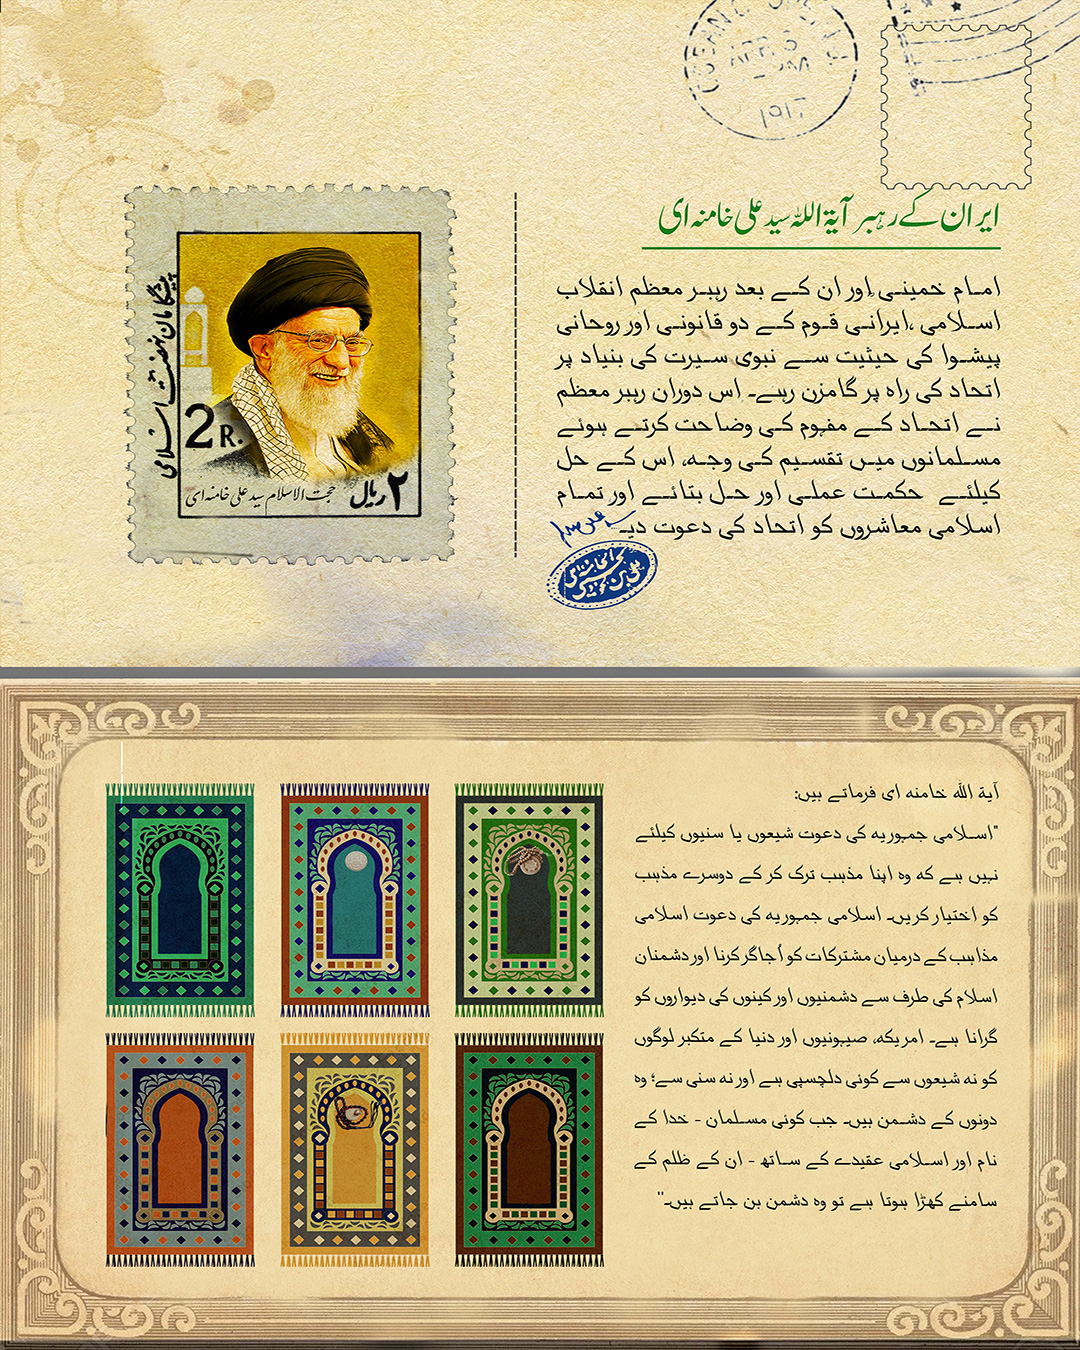 APR 5
1917
ایران کے رہبر آیۃ اللہ سید علی خامنہ ای
امام خمینی اور ان کے بعد رہبر معظم انقلاب
اسلامی ،ایرانی قوم کے دو قانونی اور روحانی
پیشوا کی حیثیت سے نبوی سیرت کی بنیاد پر
اتحاد کی راہ پر گامزن رہے۔ اس دوران رہبر معظم
نے اتحاد کے مفہوم کی وضاحت کرتے ہوئے
مسلمانوں میں تقسیم کی وجہ، اس کے حل
کیلئے حکمت عملی اور حل بتائے اور تمام
اسلامی معاشروں کو اتحاد کی دعوت دی۔
پیشگامان نهضت اسلامی
2 R.
۲ ریال
حجت الاسلام سید علی خامنه ای
آیة الله خامنه ای فرماتے ہیں:
"اسلامی جمہوریہ کی دعوت شیعوں یا سنیوں کیلئے
نہیں ہے کہ وہ اپنا مذہب ترک کر کے دوسرے مذہب
کو اختیار کریں۔ اسلامی جمہوریہ کی دعوت اسلامی
مذاہب کے درمیان مشترکات کو اُجاگر کرنا اور دشمنان
اسلام کی طرف سے دشمنیوں اور کینوں کی دیواروں کو
گرانا ہے۔ امریکہ، صیہونیوں اور دنیا کے متکبر لوگوں
کو نہ شیعوں سے کوئی دلچسپی ہے اور نہ سنی سے؛ وہ
دونوں کے دشمن ہیں۔ جب کوئی مسلمان - خدا کے
نام اور اسلامی عقیدے کے ساتھ - ان کے ظلم کے
سامنے کھڑا ہوتا ہے تو وہ دشمن بن جاتے ہیں۔"